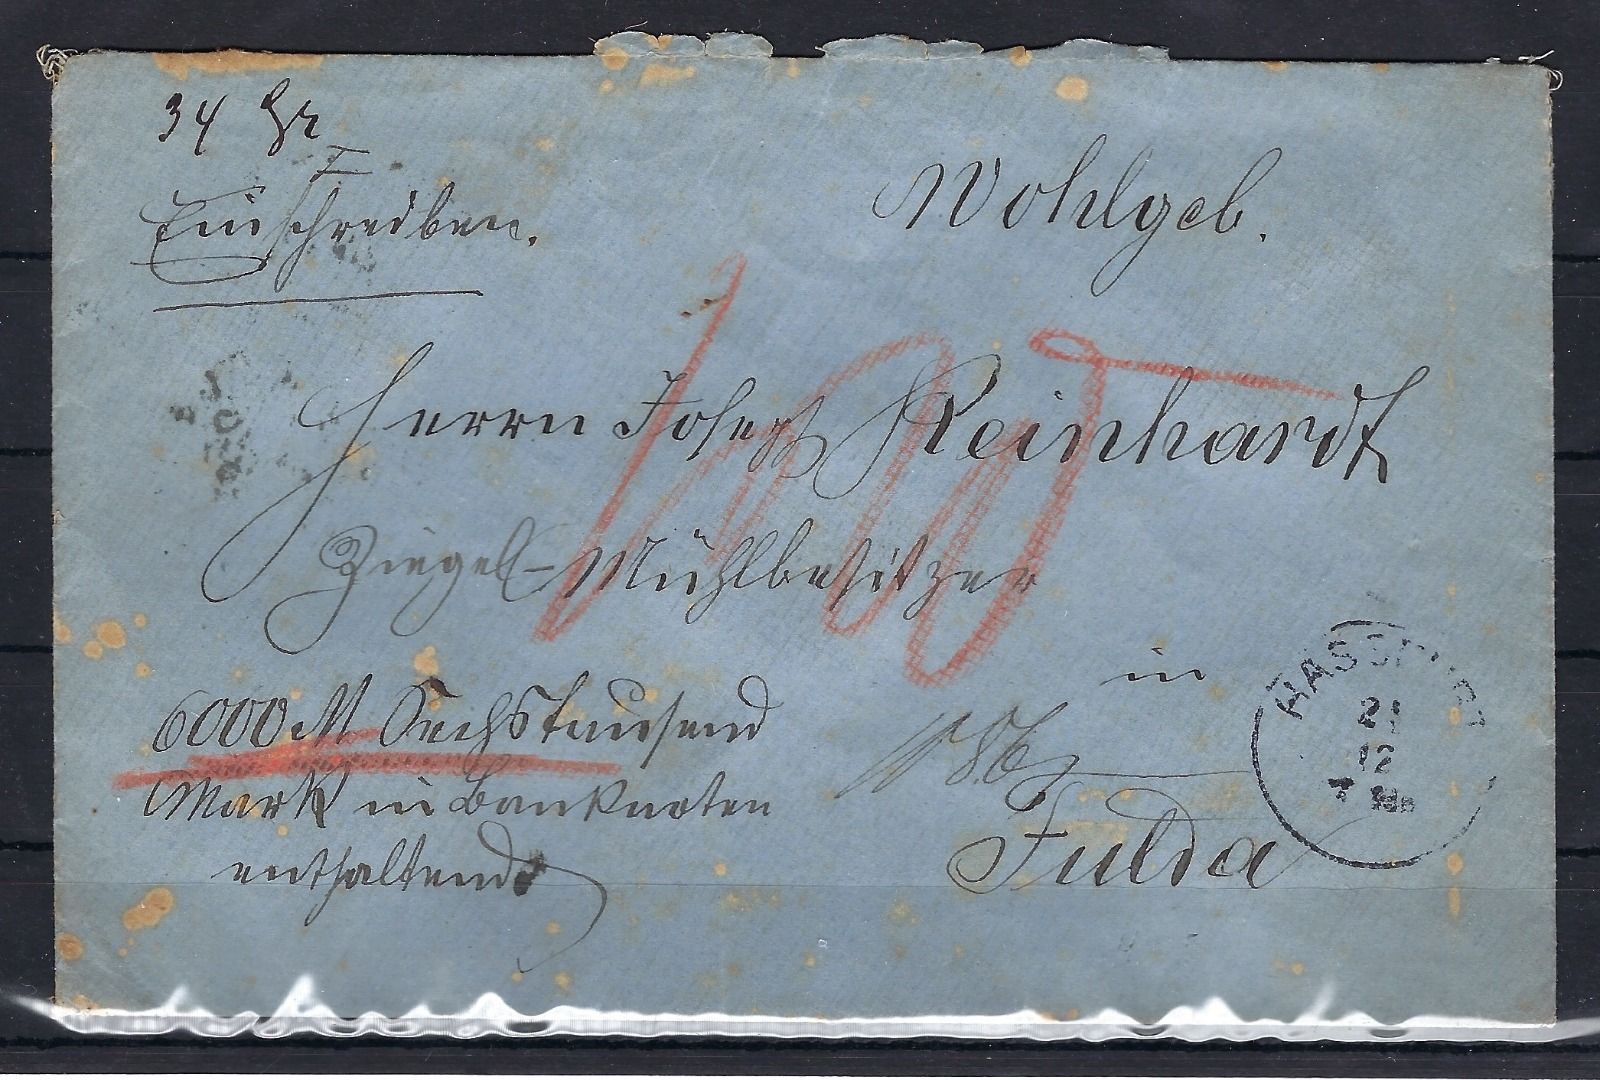 34 Gr
Einschreiben.
Wohlgeb.
Herrn Josef Reinhardt
Ziegel-Mühlbesitzer
in
Fulda
6000 M Sechstausend
Mark in Banknoten
enthaltend
HASSFURT
21
12